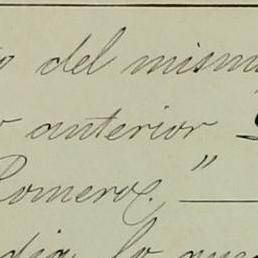 o del mismo
o anterior
Romeroz."
dia, lo que